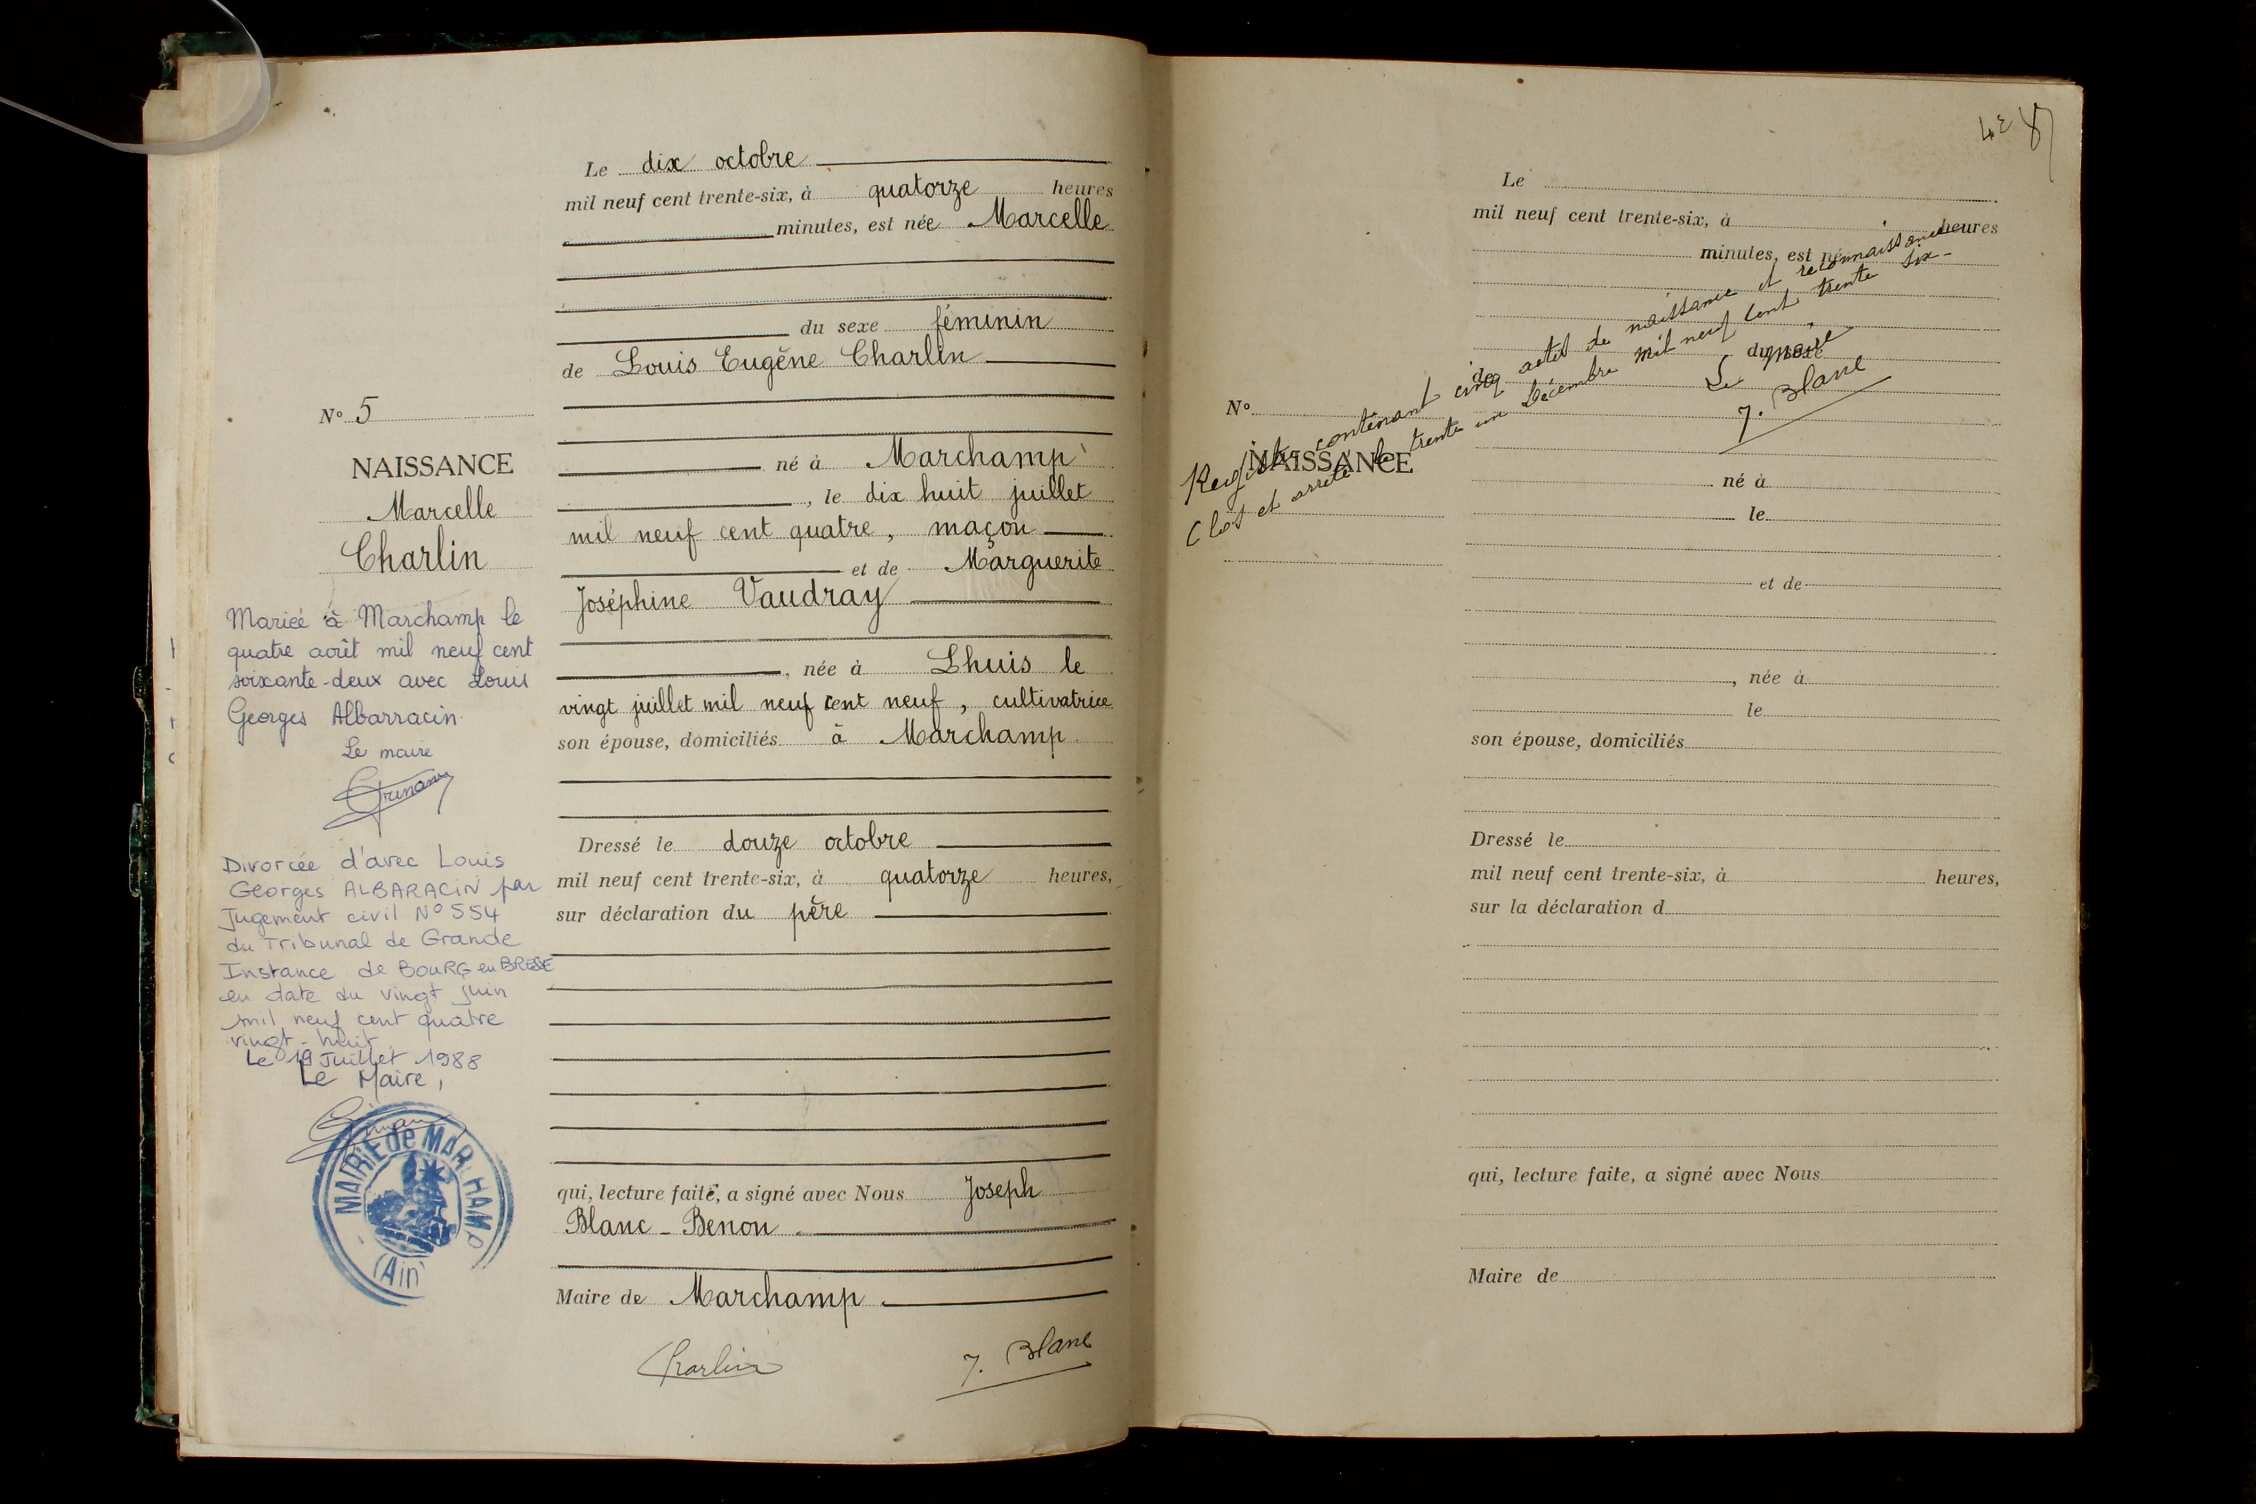 Le dix octobre
mil neuf cent trente-six, à quatorze heures
minutes, est née Marcelle
du sexe féminin
de Louis Eugène Charlin
né à Marchamp
, le dix huit juillet
mil neuf cent quatre, maçon
et de Marguerite
Joséphine Vaudray
, née à Lhuis le
vingt juillet mil neuf cent neuf, cultivatrice
son épouse, domiciliés à Marchamp
Dressé le douze octobre
mil neuf cent trente-six, à quatorze heures,
sur déclaration du père
qui, lecture faite, a signé avec Nous Joseph
Blanc-Benon
Maire de Marchamp
Charlin
J. Blanc
N° 5
NAISSANCE
Marcelle
Charlin
Mariée à Marchamp le
quatre août mil neuf cent
soixante-deux avec Louis
Georges Albarracin
Le maire
Divorcée d'avec Louis
Georges ALBARACIN par
Jugement civil N° 554
du Tribunal de Grande
Instance de BOURG en BRESSE
en date du vingt juin
mil neuf cent quatre
vingt-huit
Le 19 Juillet 1988
Le Maire,
MAIRIE de MARCHAMP
(Ain)
Le
mil neuf cent trente-six, à heures
minutes, est né
du sexe
de
N°
NAISSANCE
Registre contenant cinq actes de naissance et reconnaissance
Clos et arrêté le trente un Décembre mil neuf cent trente six-
Le maire
J. Blanc
né à
le
et de
, née à
le
son épouse, domiciliés
Dressé le
mil neuf cent trente-six, à heures,
sur la déclaration d
qui, lecture faite, a signé avec Nous
Maire de